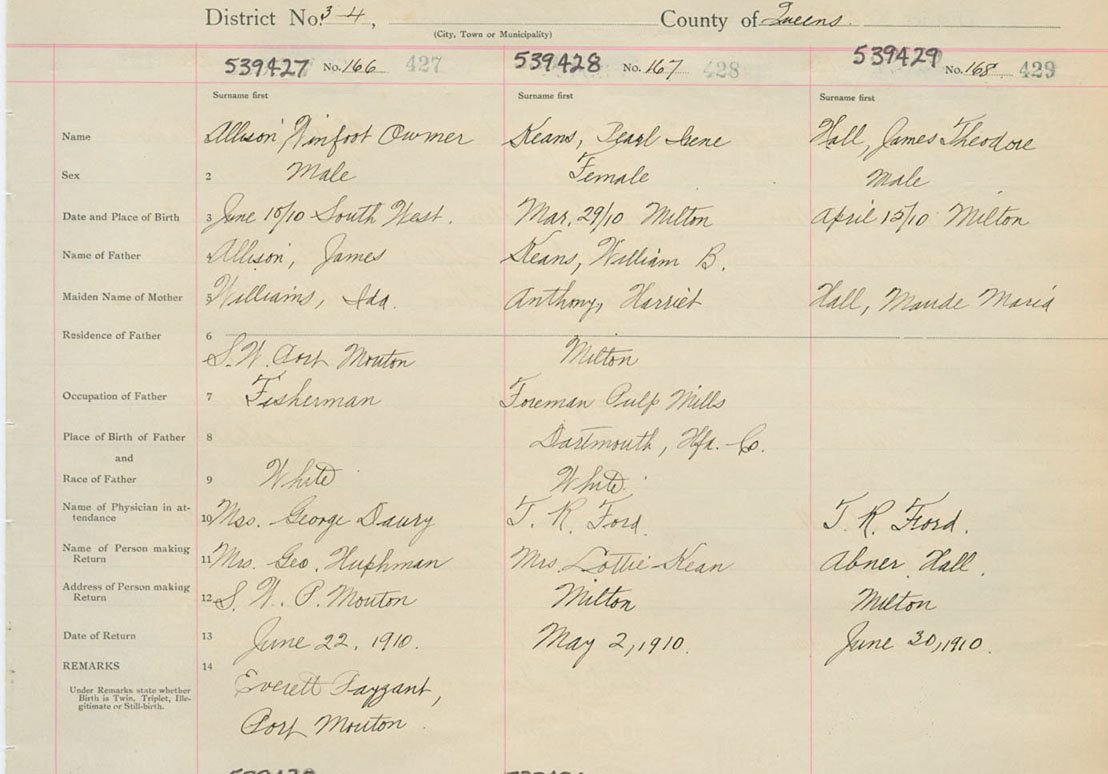 District No. 3-4, County of Queens.
(City, Town or Municipality)
539427 No. 166 427 539428 No. 167 428 539429 No. 168 429
Surname first Surname first Surname first
Name Allison Winfoot Owmer Keans, Pearl Irene Hall, James Theodore
Sex 2 Male Female Male
Date and Place of Birth 3 June 10/10 South West. Mar. 29/10 Milton April 12/10 Milton
Name of Father 4 Allison, James Keans, William B.
Maiden Name of Mother 5 Williams, Ida. Anthony, Harriet Hall, Maude Maria
Residence of Father 6
S.W. Port Mouton Milton
Occupation of Father 7 Fisherman Foreman Pulp Mills
Place of Birth of Father 8 Dartmouth, Hfx. Co.
and
Race of Father 9 White White
Name of Physician in at-
tendance 10 Mrs. George Daury T. R. Ford. T. R. Ford.
Name of Person making
Return 11 Mrs. Geo. Huphman Mrs. Lottie Kean Abner Hall.
Address of Person making
Return 12 S. W. P. Mouton Milton Milton
Date of Return 13 June 22, 1910. May 2, 1910. June 30, 1910.
REMARKS 14
Under Remarks state whether
Birth is Twin, Triplet, Ille-
gitimate or Still-birth.
Everett
Port Mouton.